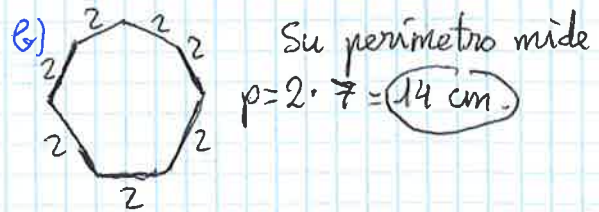 b)
2 2
2 2
2 2
2
Su perímetro mide
p = 2 · 7 = 14 cm.